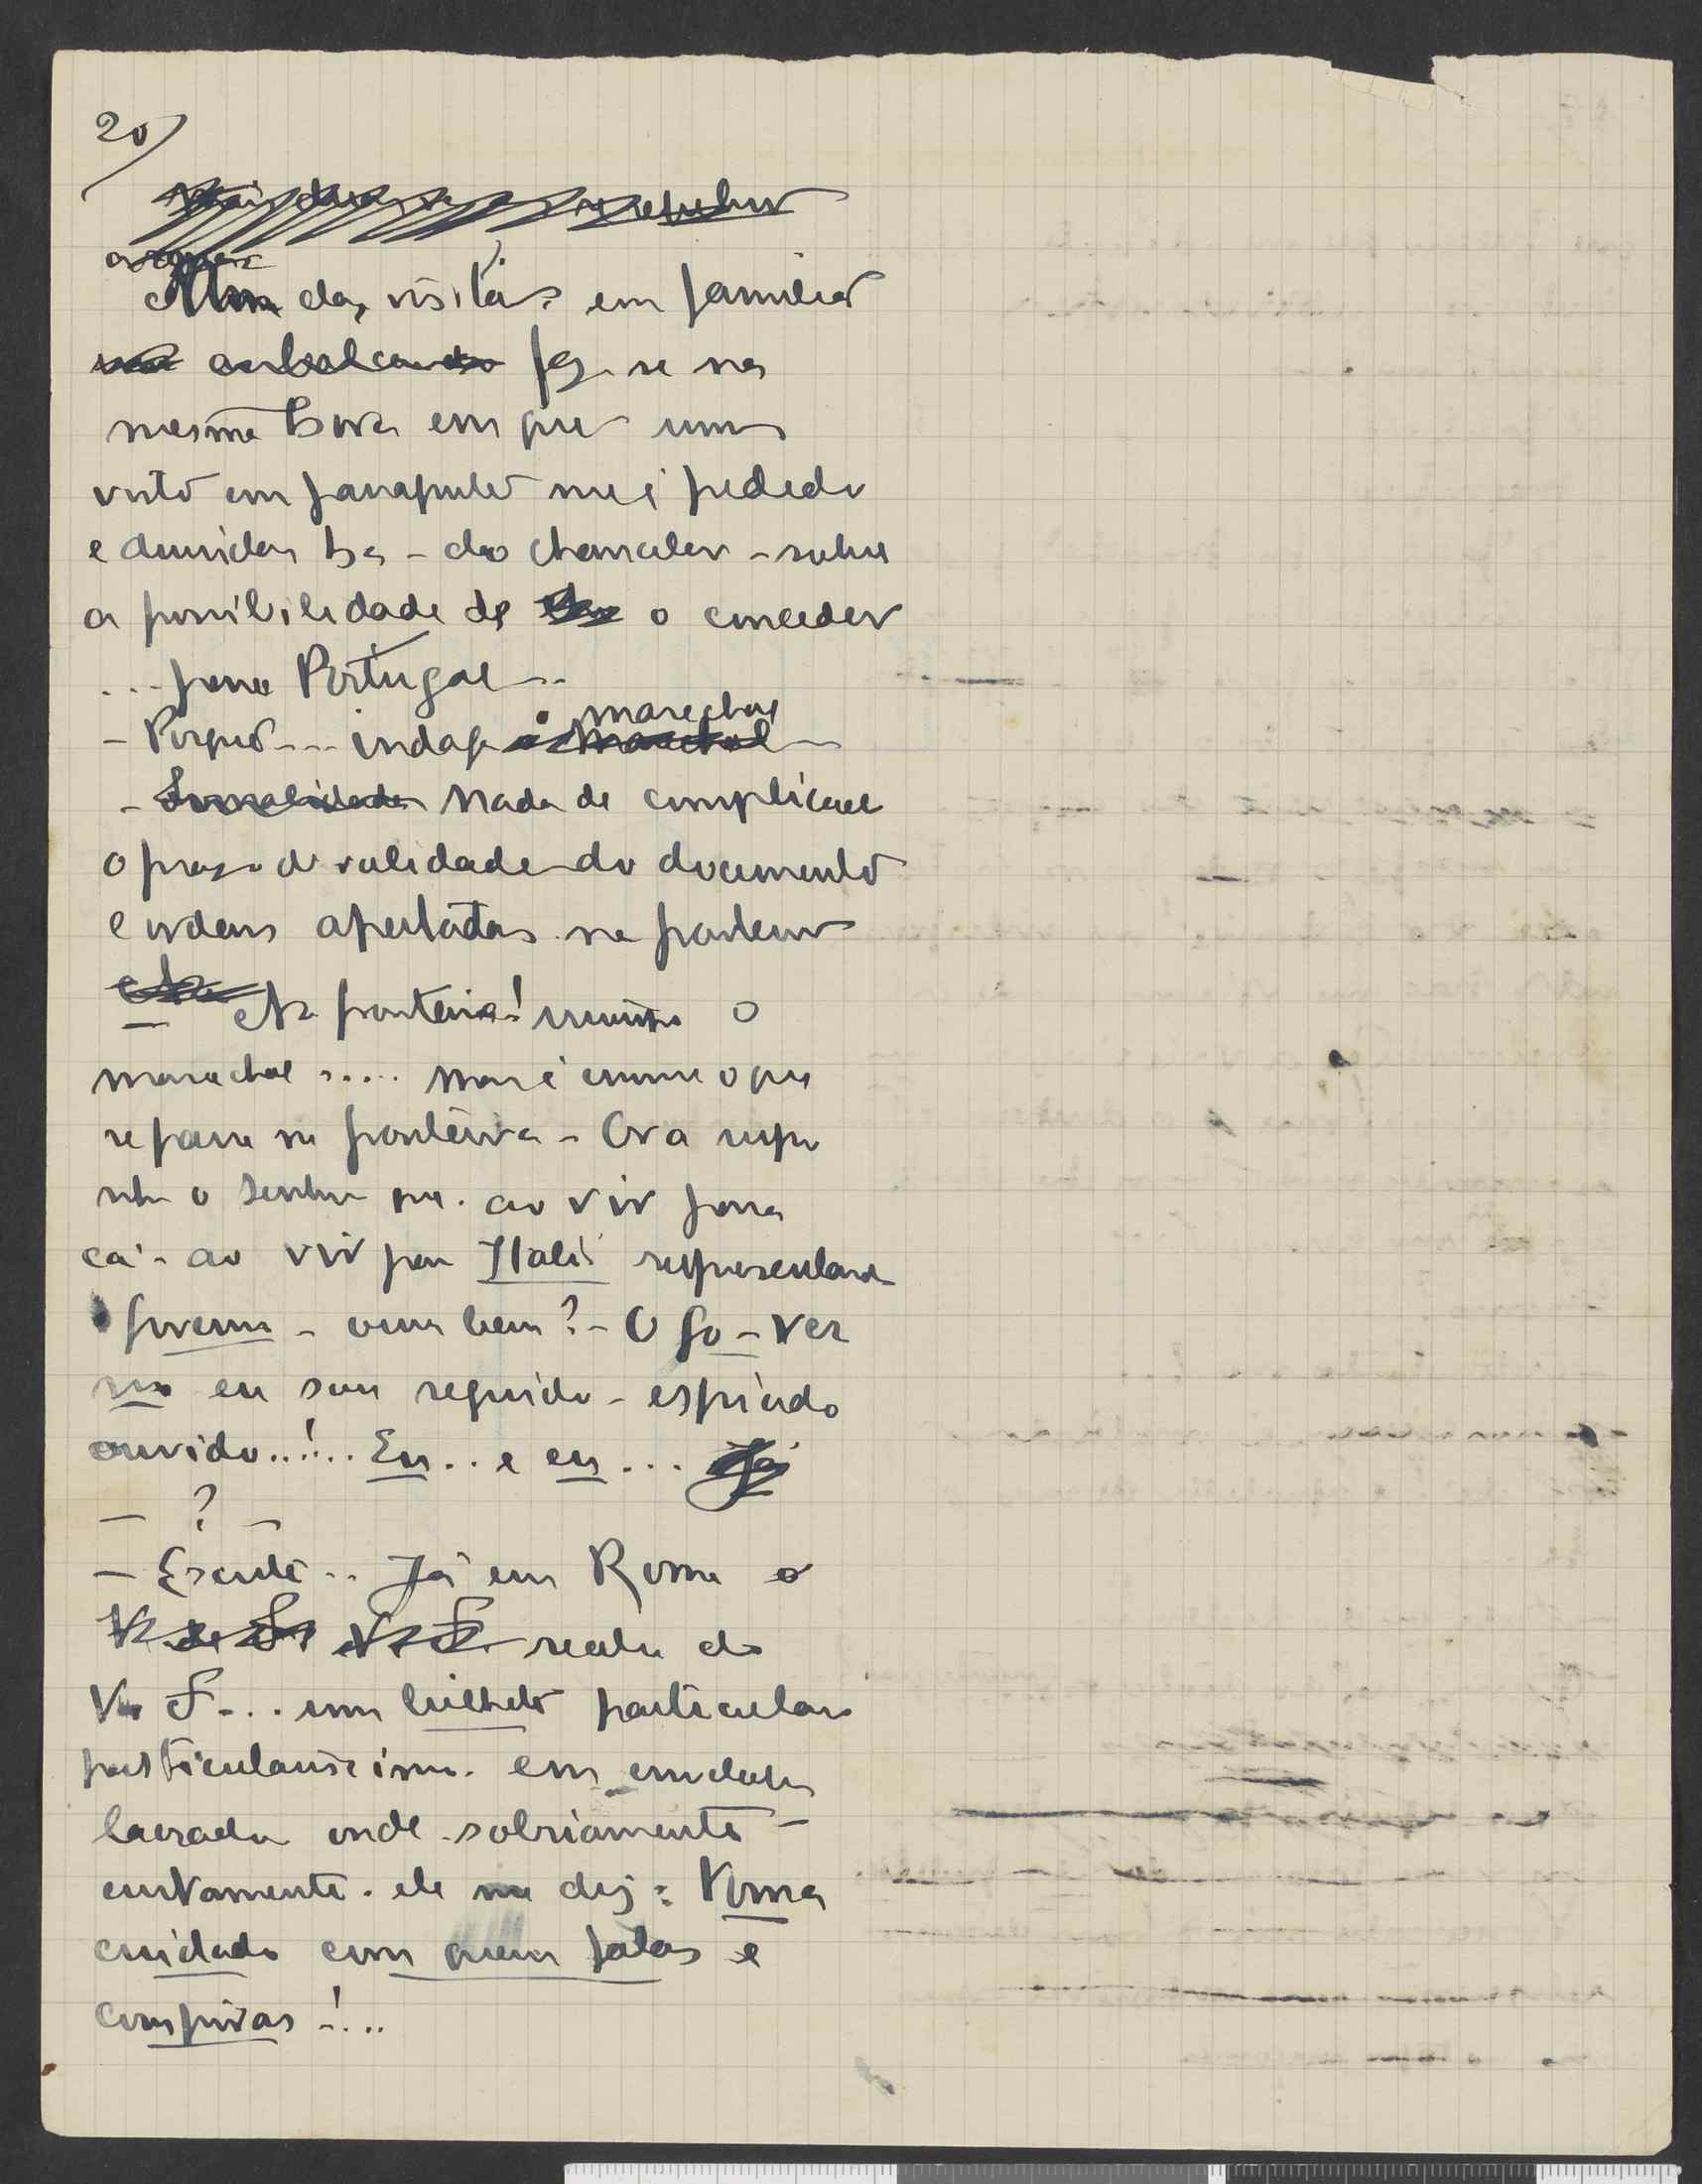 20)
das visitas em familia
fez-se na
mesma hora em que um
visto em passaporte me é pedido
e duvidas ha - do chanceler - sobre
a possibilidade de o conceder
... para Portugal...
- Porquê... indaga o marechal
- Formalidades Nada de complicado
o prazo de validade do documento
e ordens apertadas na fronteira
- Na fronteira! o
marechal ..... Mas é enorme o que
se passa na fronteira - Ora supo
nha o senhor que. ao vir para
cá - ao vir para Italia representar
o governo - ouve bem? - O Go - ver
no eu sou seguido - espiado
ouvido..!.. Eu.. e eu... Já
- ? -
- Escute.. Já em Roma
recebo do
V F... um bilhete particular
particularissimo. em
lacrado onde sobriamente -
curtamente. ele me diz: Toma
cuidado com quem falas e
conspiras!...